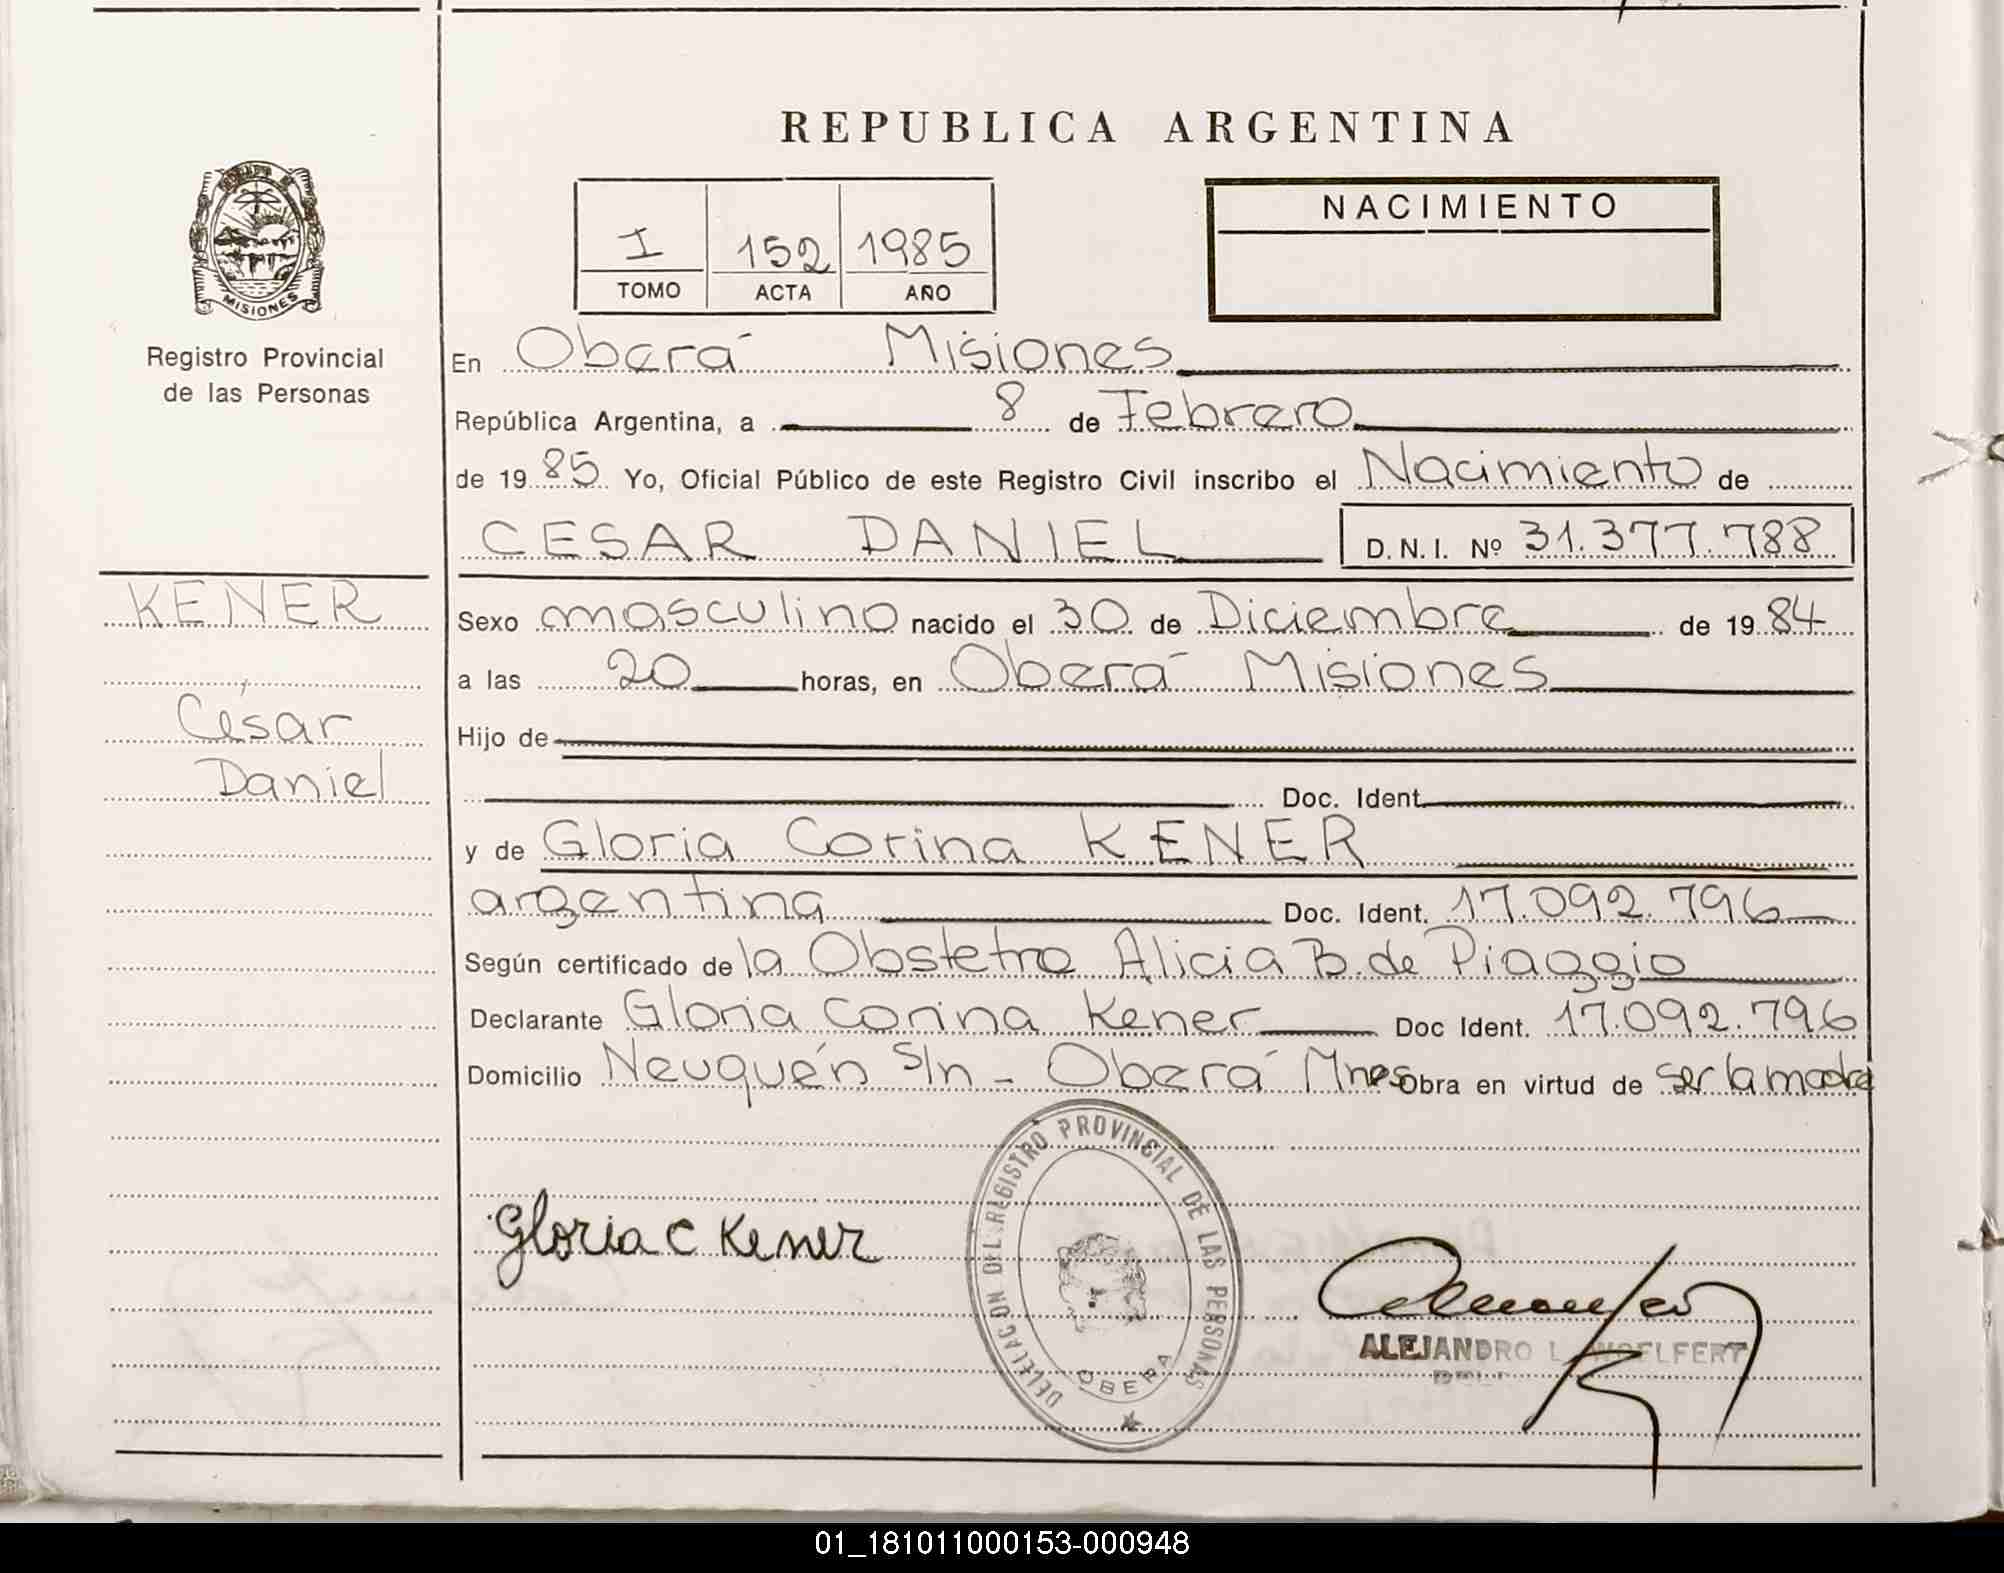 REPUBLICA ARGENTINA
MISIONES
Registro Provincial
de las Personas
I 152 1985
TOMO ACTA AÑO
NACIMIENTO
En Oberá Misiones
República Argentina, a 8 de Febrero
de 1985 Yo, Oficial Público de este Registro Civil inscribo el Nacimiento de
CESAR DANIEL D.N.I. Nº 31.377.788
KENER
César
Daniel
Sexo masculino nacido el 30 de Diciembre de 1984
a las 20 horas, en Oberá Misiones
Hijo de
Doc. Ident.
y de Gloria Corina KENER
argentina Doc. Ident. 17.092.796
Según certificado de la Obstetra Alicia B. de Piaggio
Declarante Gloria Corina Kener Doc Ident. 17.092.796
Domicilio Neuquén S/n - Oberá Mnes Obra en virtud de ser la madre
DELEGACION DEL REGISTRO PROVINCIAL DE LAS PERSONAS
OBERA
Gloria C Kener
ALEJANDRO L. WOELFERT
01_181011000153-000948